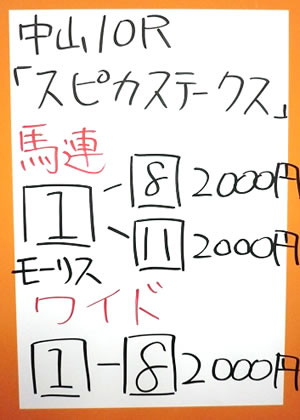 中山10R
「スピカステークス」
馬連
1-8 2000円
11 2000円
モーリス
ワイド
1-8 2000円